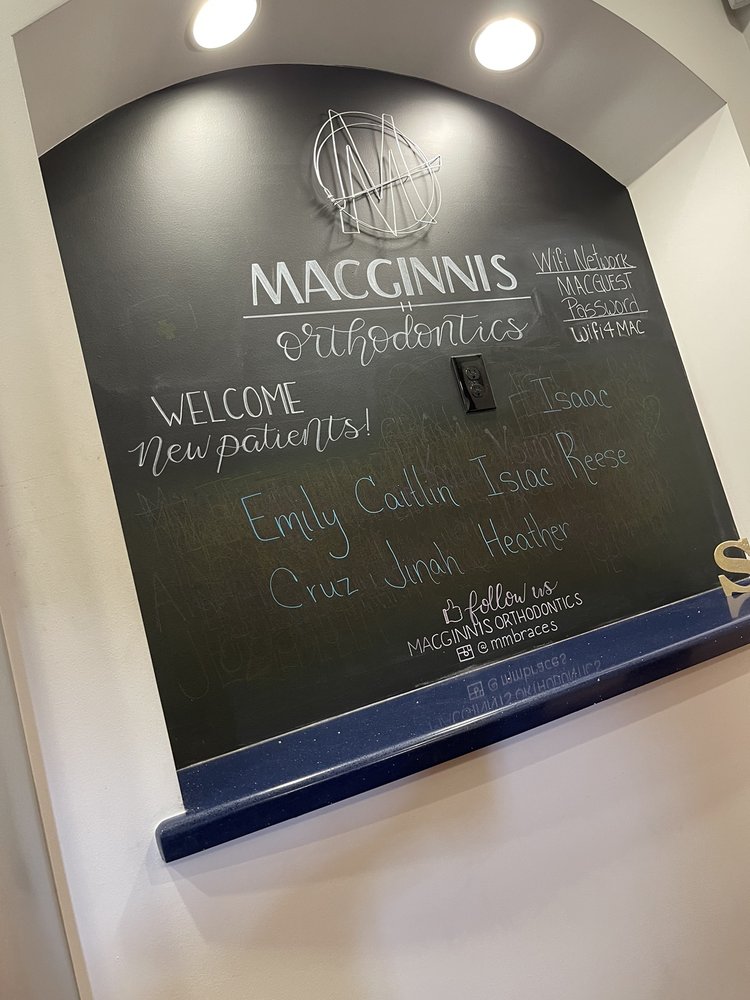 MACGINNIS
orthodontics
Wifi Network
MACGUEST
Password
Wifi4MAC
WELCOME
new patients!
Isaac
Emily Caitlin Islac Reese
Cruz Jinah Heather
follow us
MACGINNIS ORTHODONTICS
@mmbraces